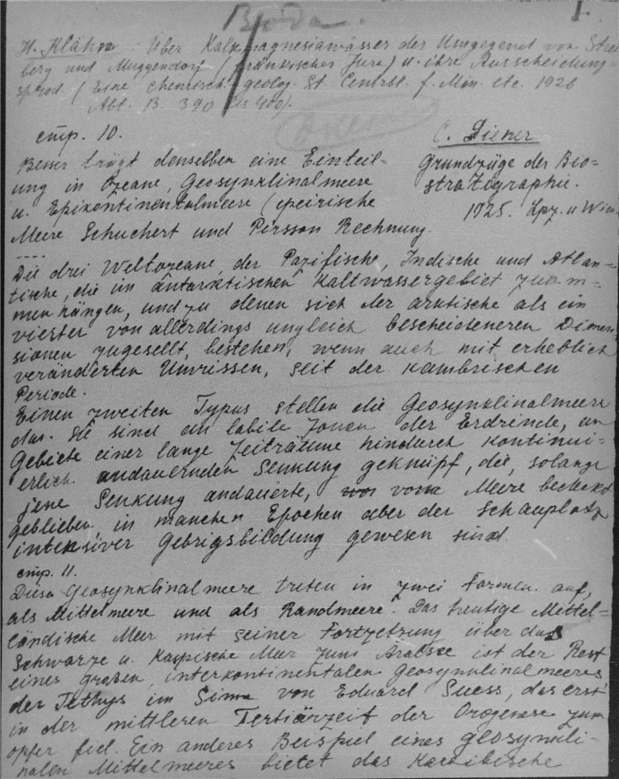 Вода.
1.
H. Klähn: Über Kalkmagnesiawässer der Umgegend von Strei-
berg und Muggendorf (fränkischer Jura) u. ihre Ausscheidung-
sprod. (Eine chemisch-geolog. St Centrbt. f. Min. etc. 1926
Abt. B. 390 bis 400).
стр. 10.
C. Diener
Grundzüge der Bio-
stratigraphie.
1925. Lpz. u Wien
Besser trägt denselben eine Einteil-
ung in Ozeane, Geosynklinalmeere
u. Epikontinentalmeere (epeirische
Meere Schuchert und Pirsson Rechnung.
....
Die drei Weltozeane, der Pazifische, Indische und Atlan-
tische, die im antarktischen Kaltwassergebiet zusam-
menhängen, und zu denen sich der arktische als ein
vierter von allerdings ungleich bescheideneren Dimen-
sionen zugesellt, bestehen, wenn auch mit erheblich
veränderten Umrissen, seit der kambrischen
Periode.
Einen zweiten Typus stellen die Geosynklinalmeere
dar. Sie sind an labile Zonen der Erdrinde, an
Gebiete einer lange Zeiträume hindurch kontinui-
erlich andauernden Senkung geknüpf, die, solange
jene Senkung andauerte, vom Meere bedeckt
geblieben, in manchen Epochen aber der Schauplatz
intensiver Gebrigsbildung gewesen sind.
стр. 11.
Diese Geosynklinalmeere treten in zwei Formen auf,
als Mittelmeere und als Randmeere. Das heutige Mittel-
ländische Meer mit seiner Fortzetzung über das
Schwarze u. Kaspische Meer zum Aralsee ist der Rest
eines großen, interkontinentalen Geosynklinalmeeres
der Tethys im Sinne von Eduard Suess, das erst
in der mittleren Tertiärzeit der Orogenese zum
opfer fiel. Ein anderes Beispiel eines geosynkli-
nalen Mittelmeeres bietet das Karaibische